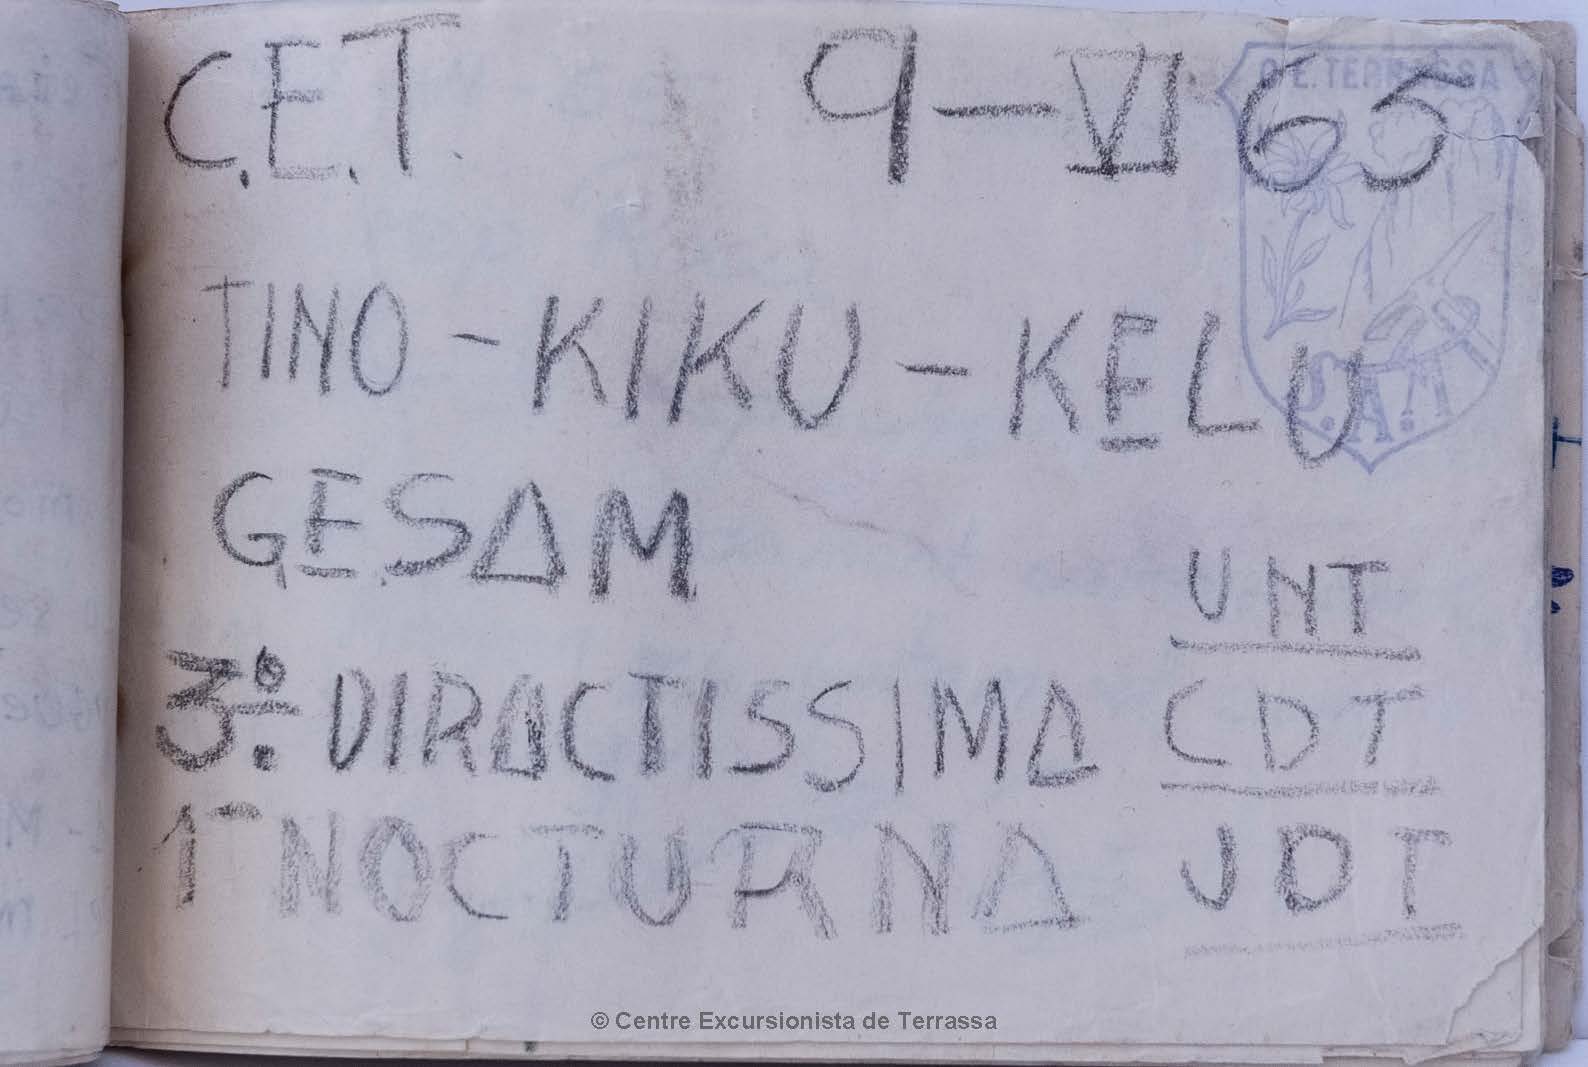 C.E.T. 9-VI 65
C.E. TERRASSA
TINO - KIKU - KELU
J.A.T
GESAM
UNT
3º. DIRACTISSIMA CDT
1ª NOCTURNA JDT
© Centre Excursionista de Terrassa